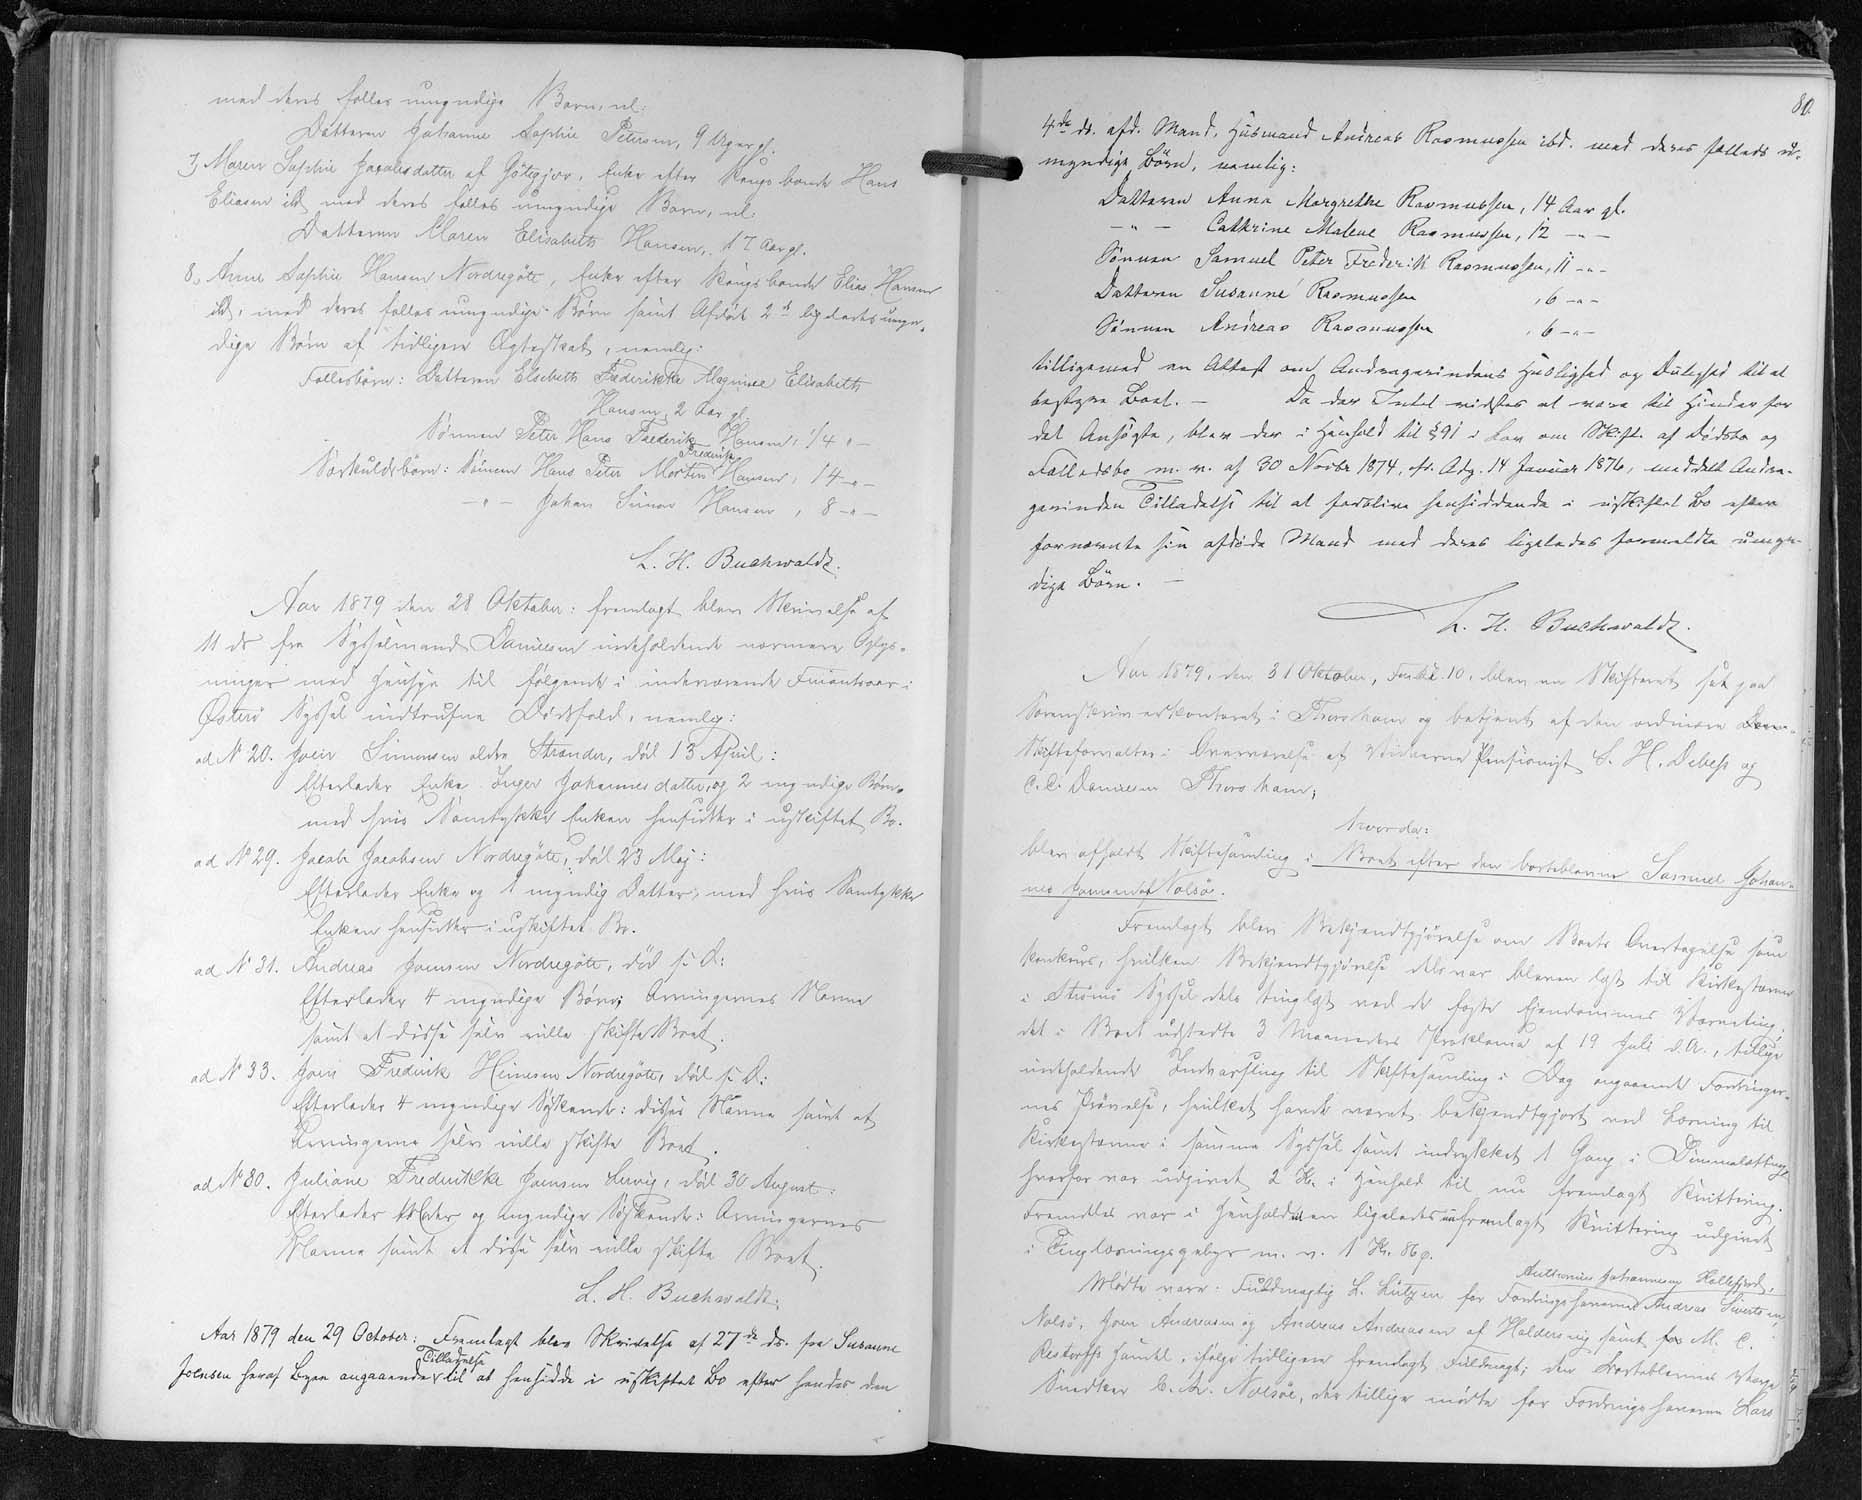 med deres fælles umyndige Børn, nl:
Datteren Johanne Sophie Petersen, 9 Aar gl.
7, Maren Sophie Jacobsdatter af Götegjov, Enke efter Kongsbonde Hans
Eliasen ibd med deres fælles umyndige Børn, nl:
Datteren Maren Elisabeth Hansen, 17 Aar gl.
8, Anne Sophie Hansen Nordregöte, Enke efter Kongsbonde Elias Hansen
ibd, med deres fælles umyndige Børn samt Afdøde ligeledes umyn-
dige Børn af tidligere Ægteskab, nemlig:
Fællesbørn: Datteren Elsebeth Frederikke Elisabeth
Hansen, 2 Aar gl.
Sønnen Peter Hans Frederik Hansen, 1/4 -"-
Særkuldsbørn: Sønnen Hans Peter Morten Frederik Hansen, 14 -"-
-"- Johan Simon Hansen, 8 -"-
L. H. Buchwaldt.
Aar 1879 den 28 Oktober: fremlagt blev Skrivelse af
11 ds fra Sysselmand Danielsen indeholdende nærmere Oplys-
ninger med Hensyn til følgende i indeværende Finantsaar i
Østerø Syssel indtrufne Dødsfald, nemlig:
ad No 20. Joen Simonsen ældre Strænder, død 13 April:
Efterlader Enke Inger Johannesdatter, og 2 myndige Børn,
med hvis Samtykke Enken hensidder i uskiftet Bo.
ad No 29. Jacob Jacobsen Nordregöte, død 23 Maj:
Efterlader Enke og 1 myndig Datter, med hvis Samtykke
Enken hensidder i uskiftet Bo.
ad No 31. Andreas Joensen Nordregöte, død s. D:
Efterlader 4 myndige Børn; Arvingernes Navne
samt at disse selv ville skifte Boet.
ad No 33. Joen Fredrik Heinesen Nordregöte, død s. D:
Efterlader 4 myndige Søskende: disses Navne samt at
Arvingerne selv ville skifte Boet.
ad No 80. Juliane Fredrikke Joensen Lervig, død 30 August:
Efterlader og myndige Søskende: Arvingernes
Navne samt at disse selv ville skifte Boet.
L. H. Buchwaldt.
Aar 1879 den 29 October: Fremlagt blev Skrivelse af 27de ds. fra Susanne
Joensen heraf Byen angaaende Tilladelse til at hensidde i uskiftet Bo efter hendes den
80.
4de ds. afd. Mand, Husmand Andreas Rasmussen ibd. med deres fælleds u-
myndige Börn, nemlig:
Datteren Anna Margrethe Rasmussen, 14 Aar gl.
-"- Cathrine Malene Rasmussen, 12 -"-
Sönnen Samuel Peter Frederik Rasmussen, 11 -"-
Datteren Susanne Rasmussen , 6 -"-
Sönnen Andreas Rasmussen , 6 -"-
tilligemed en Attest om Andragerindens Huslighed og Duelighed til at
bestyre Boet. — Da der Intet vidstes at være til Hinder for
det Ansøgte, blev der i Henhold til §91 i Lov om Skifte af Dødsbo og
Fælledsbo m. v. af 30 Novbr 1874, cfr. Adg. 14 Januar 1876, meddelt Andra-
gerinden Tilladelse til at forblive hensiddende i uskiftet Bo efter
fornævnte sin afdøde Mand med deres ligeledes formeldte umyn-
dige Börn. —
L. H. Buchwaldt.
Aar 1879, den 31 Oktober, Form. Kl. 10, blev en Skifteret sat paa
Sorenskriverkontoret i Thorshavn og betjent af den ordinære
Skifteforvalter i Overværelse af Vidnerne Pensionist S. H. Debess og
C. C. Danielsen Thorshavn;
hvorda:
blev afholdt Skiftesamling i Boet efter den bortblevne Samuel Johan-
nes Joensen af Nolsø.
Fremlagt blev Bekjendtgjørelse om Boets Overtagelse som
konkurs, hvilken Bekjendtgjørelse dels var bleven læst til Kirkestævne
i Strømø Syssel dels tinglæst ved de faste Ejendommes Værneting;
det i Boet udstedte 3 Maaneders Proklama af 19 Juli d. A., tillige
indeholdende Indvarsling til Skiftesamling i Dag angaaende Fordringer-
nes Prøvelse, hvilket havde været bekjendtgjort ved Læsning til
Kirkestævne i samme Syssel samt indrykket 1 Gang i Dimmalætting,
hvorfor var udgivet 2 Kr. i Henhold til nu fremlagt Kvittering.
Fremdeles var i Henhold til en ligeledes nu fremlagt Kvittering udgivet
i Tinglæsningsgebyr m. v. 1 Kr. 86 ø.
Mødte vare: Fuldmægtig L. Lützen for Fordringshaverne Anthonius Johannesen Hollefjord, Andreas Sivertsen
Nolsø, Joen Andreasen og Andreas Andreasen af Haldersvig samt for M. C.
Restorffs Handel, ifølge tidligere fremlagt Fuldmagt; den bortblevnes Værge
Snedker Nolsøe, der tillige mødte for Fordringshaveren Lars